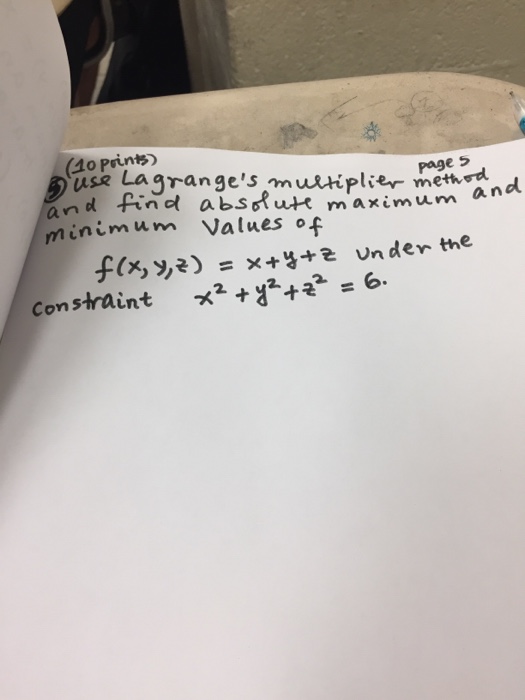 (10 points) page 5
③ use Lagrange's multiplier method
and find absolute maximum and
minimum values of
f(x,y,z) = x+y+z under the
constraint x² + y² + z² = 6.